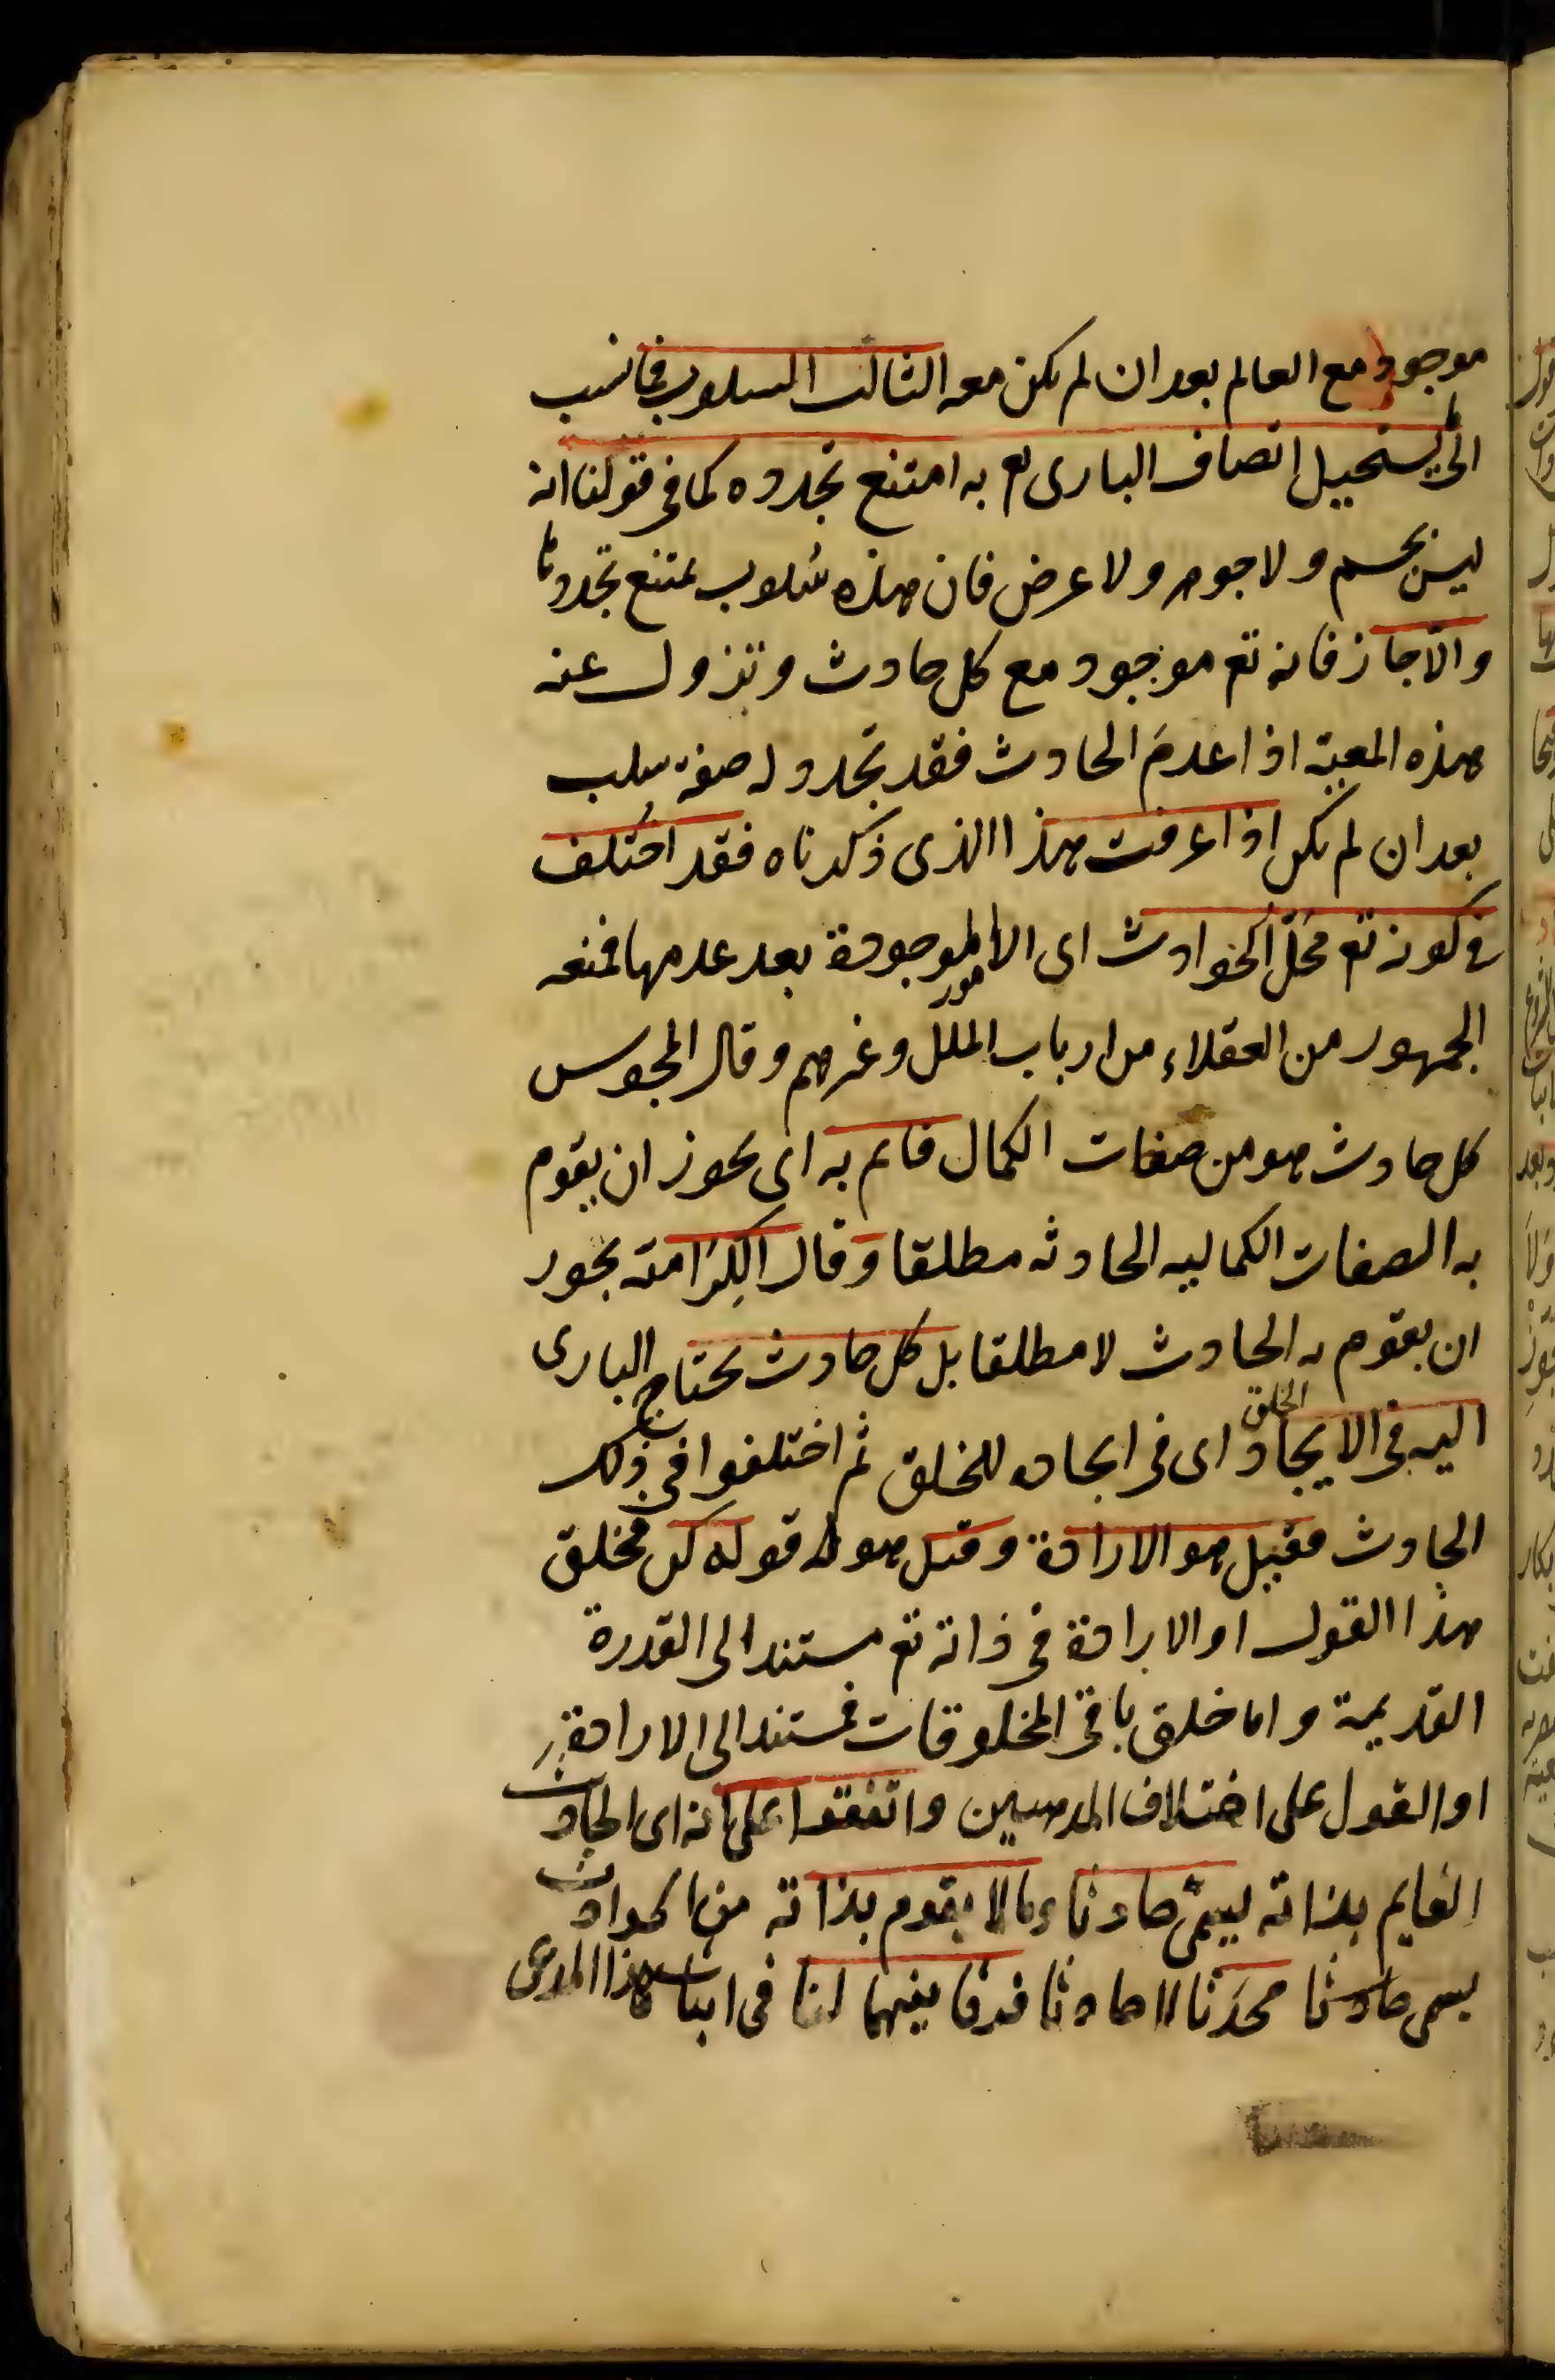 موجود مع العالم بعد ان لم يكن معه الثالث السلوب فما نسب
الى ما يستحيل اتصاف البارى تع به امتنع تجدده كما فى قولنا انه
ليس بجسم ولا جوهر ولا عرض فان هذه سلوب يمتنع تجددها
والا جاز فانه تع موجود مع كل حادث وتزول عنه
هذه المعية اذا عدم الحادث فقد تجدد له صفة سلب
بعد ان لم يكن اذا عرفت هذا الذى ذكرناه فقد اختلف
فى كونه تع محل الحوادث اى الامور الموجودة بعد عدمها فمنعه
الجمهور من العقلاء من ارباب الملل وغيرهم وقال المجوس
كل حادث هو من صفات الكمال قايم به اى يجوز ان يقوم
به الصفات الكماليه الحادثه مطلقا وقال الكرامية يجوز
ان يقوم به الحادث لا مطلقا بل كل حادث يحتاج البارى
اليه فى الايجاد الخلق اى فى ايجاده للخلق ثم اختلفوا فى ذلك
الحادث فقيل هو الارادة وقيل هو قوله كن فخلق
هذا القول او الارادة فى ذاته تع مستند الى القدرة
القديمة واما خلق باقى المخلوقات فمستند الى الارادة
او القول على اختلاف المذهبين واتفقوا على انه اى الحادث
القايم بذاته يسمى حادثا وما لا يقوم بذاته من الحوادث
يسمى حادثا محدثا لا حادثا فرقا بينهما لنا فى اثبات هذا المدعى